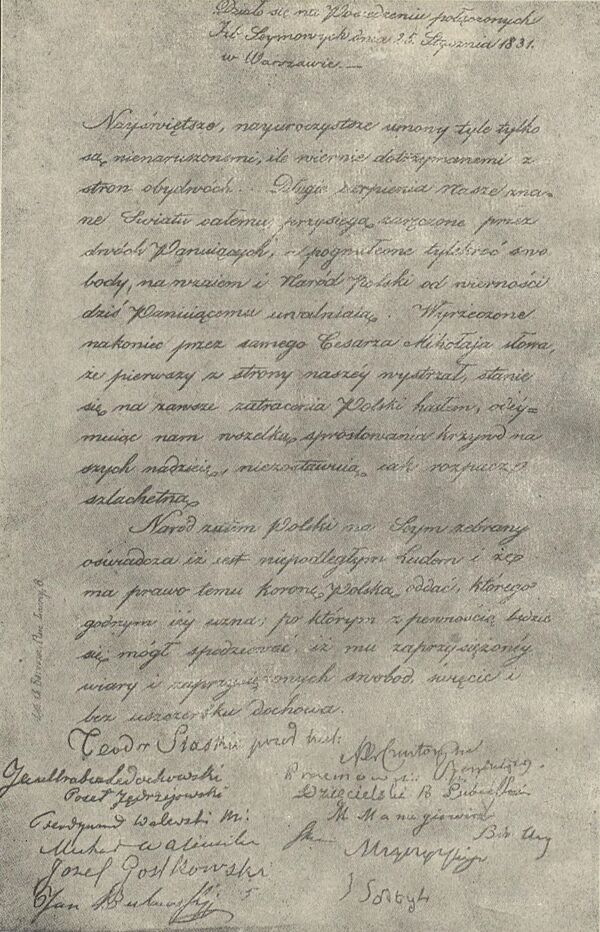 Działo się na Posiedzeniu połączonych
Izb Seymowych dnia 25. Stycznia 1831.
w Warszawie.—
Nayświętsze, nayuroczystsze umowy tyle tylko
są nienaruszonemi, ile wiernie dotrzymanemi z
stron obydwóch. Długie cierpienia Nasze zna-
ne Światu całemu, przysięgą zaręczone przez
dwóch Panuiących, a pogwałcone tylekroć swo
body, nawzaiem i Naród Polski od wierności
dziś Panuiącemu uwalniaią. Wyrzeczone
nakoniec przez samego Cesarza Mikołaja słowa,
że pierwszy z strony naszéy wystrzał, stanie
się na zawsze zatracenia Polski hasłem, odéy-
muiąc nam wszelką sprostowania krzywd na
szych nadzieię, niezostawuią iak rozpacz
szlachetną.
Naród zatém Polski na Seym zebrany
oświadcza iż iest niepodległym Ludem i że
ma prawo temu Koronę Polską oddać, którego
godnym iéy uzna; po którym z pewnością będzie
się mógł spodziewać, iż mu zaprzysiężonéy
wiary i zaprzysiężonych swobod, święcie i
bez uszczerbku dochowa.
Teodor
Jan Ledochowski
Poseł Jędrzejowski
Ferdynand Walewski
Michał
Józef Gostkowski
Jan
Dzięcielski
Sołtyk